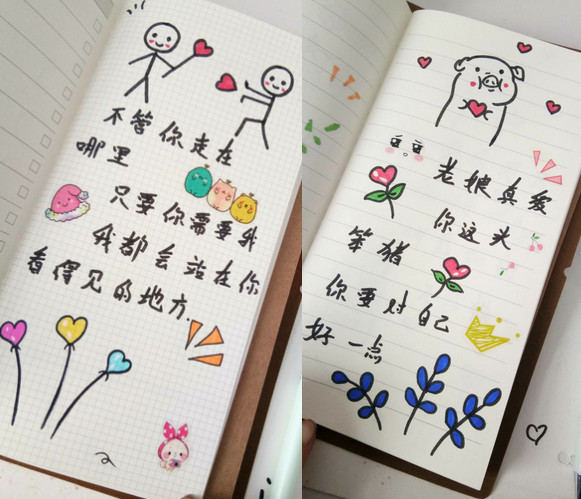 不管你走在
哪里
只要你需要我
我都会站在你
看得见的地方.
老娘真爱
你这头
笨猪
你要对自己
好一点